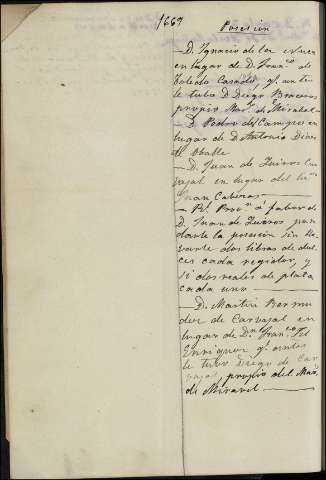 1667
Posesion
— D. Ignacio de las
en lugar de D. Fran.co de
Toledo Casado, q.e antes
le tubo D. Diego Braceros
propio Mar.s de Mirabel —
— D. Pedro de Campos en
lugar de D. Antonio
de Oballe
— D. Juan de Quiros Car
vajal en lugar del
Juan Cabezas —
— Pet. Proc.n á fabor de
D. Juan de Quiros para
darle la posesion sin lle
varle dos libras de dul
ces cada regidor, y
si dos reales de plata
cada uno —
— D. Martin Bermu
dez de Carvajal en
lugar de D.n Fran.co Gil
Enriquez q.e antes
le tubo Diego de Car
vajal, propio del Mar.s
de Miravel —